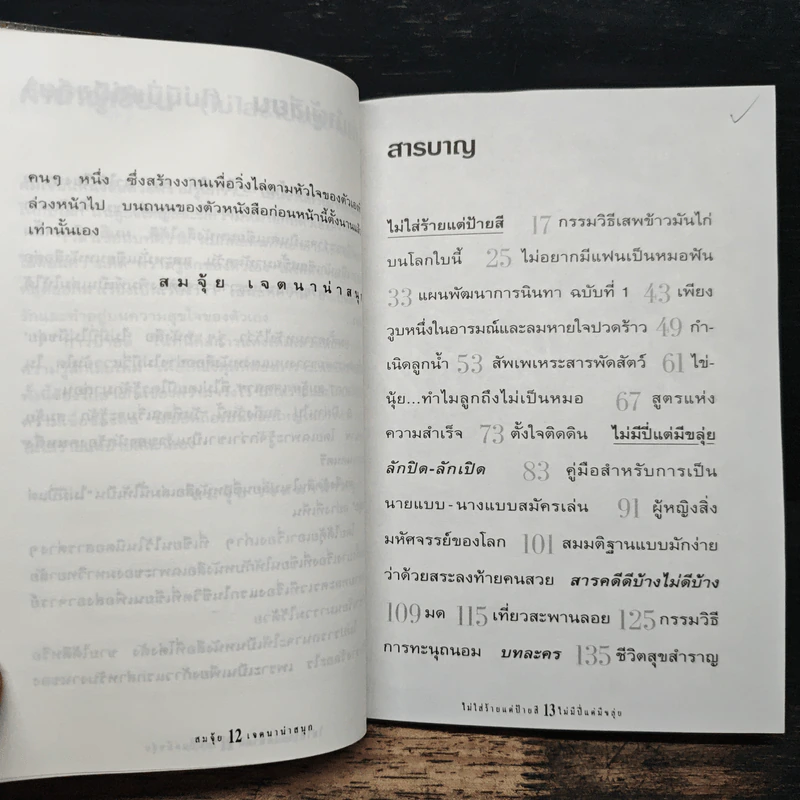 คนๆ หนึ่ง ซึ่งสร้างงานเพื่อวิ่งไล่ตามหัวใจของตัวเองที่
ล่วงหน้าไป บนถนนของตัวหนังสือก่อนหน้านี้ตั้งนานแล้ว
เท่านั้นเอง
สมจุ้ย เจตนาน่าสนุก
สมจุ้ย 12 เจตนาน่าสนุก
สารบาญ
ไม่ใส่ร้ายแต่ป้ายสี 17 กรรมวิธีเสพข้าวมันไก่
บนโลกใบนี้ 25 ไม่อยากมีแฟนเป็นหมอฟัน
33 แผนพัฒนาการนินทา ฉบับที่ 1 43 เพียง
วูบหนึ่งในอารมณ์และลมหายใจปวดร้าว 49 กำ-
เนิดลูกน้ำ 53 สัพเพเหระสารพัดสัตว์ 61 ไข่-
นุ้ย...ทำไมลูกถึงไม่เป็นหมอ 67 สูตรแห่ง
ความสำเร็จ 73 ตั้งใจติดดิน ไม่มีปี่แต่มีขลุ่ย
ลักปิด-ลักเปิด 83 คู่มือสำหรับการเป็น
นายแบบ-นางแบบสมัครเล่น 91 ผู้หญิงสิ่ง
มหัศจรรย์ของโลก 101 สมมติฐานแบบมักง่าย
ว่าด้วยสระลงท้ายคนสวย สารคดีดีบ้างไม่ดีบ้าง
109 มด 115 เที่ยวสะพานลอย 125 กรรมวิธี
การทะนุถนอม บทละคร 135 ชีวิตสุขสำราญ
ไม่ใส่ร้ายแต่ป้ายสี 13 ไม่มีปี่แต่มีขลุ่ย